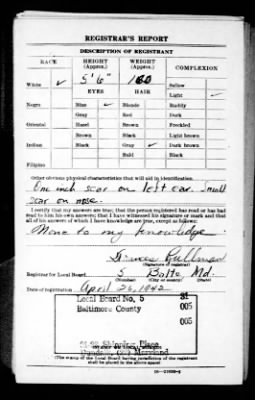 REGISTRAR'S REPORT
DESCRIPTION OF REGISTRANT
RACE HEIGHT (Approx.) WEIGHT (Approx.) COMPLEXION
White ✓ 5' 6" 160 Sallow
EYES HAIR Light ✓
Negro Blue ✓ Blonde Ruddy
Gray Red Dark
Oriental Hazel Brown Freckled
Brown Black Light brown
Indian Black Gray ✓ Dark brown
Bald Black
Filipino
Other obvious physical characteristics that will aid in identification.
One inch scar on left ear. Small
scar on nose.
I certify that my answers are true; that the person registered has read or has had
read to him his own answers; that I have witnessed his signature or mark and that
all of his answers of which I have knowledge are true, except as follows:
None to my knowledge
(Signature of registrar)
Registrar for Local Board 5 Balto Md.
(Number) (City or county) (State)
Date of registration April 26, 1942
Local Board No. 5 31
Baltimore County 005
005
Shipping Place
Maryland
(The stamp of the Local Board having jurisdiction of the registrant
shall be placed in the above space)